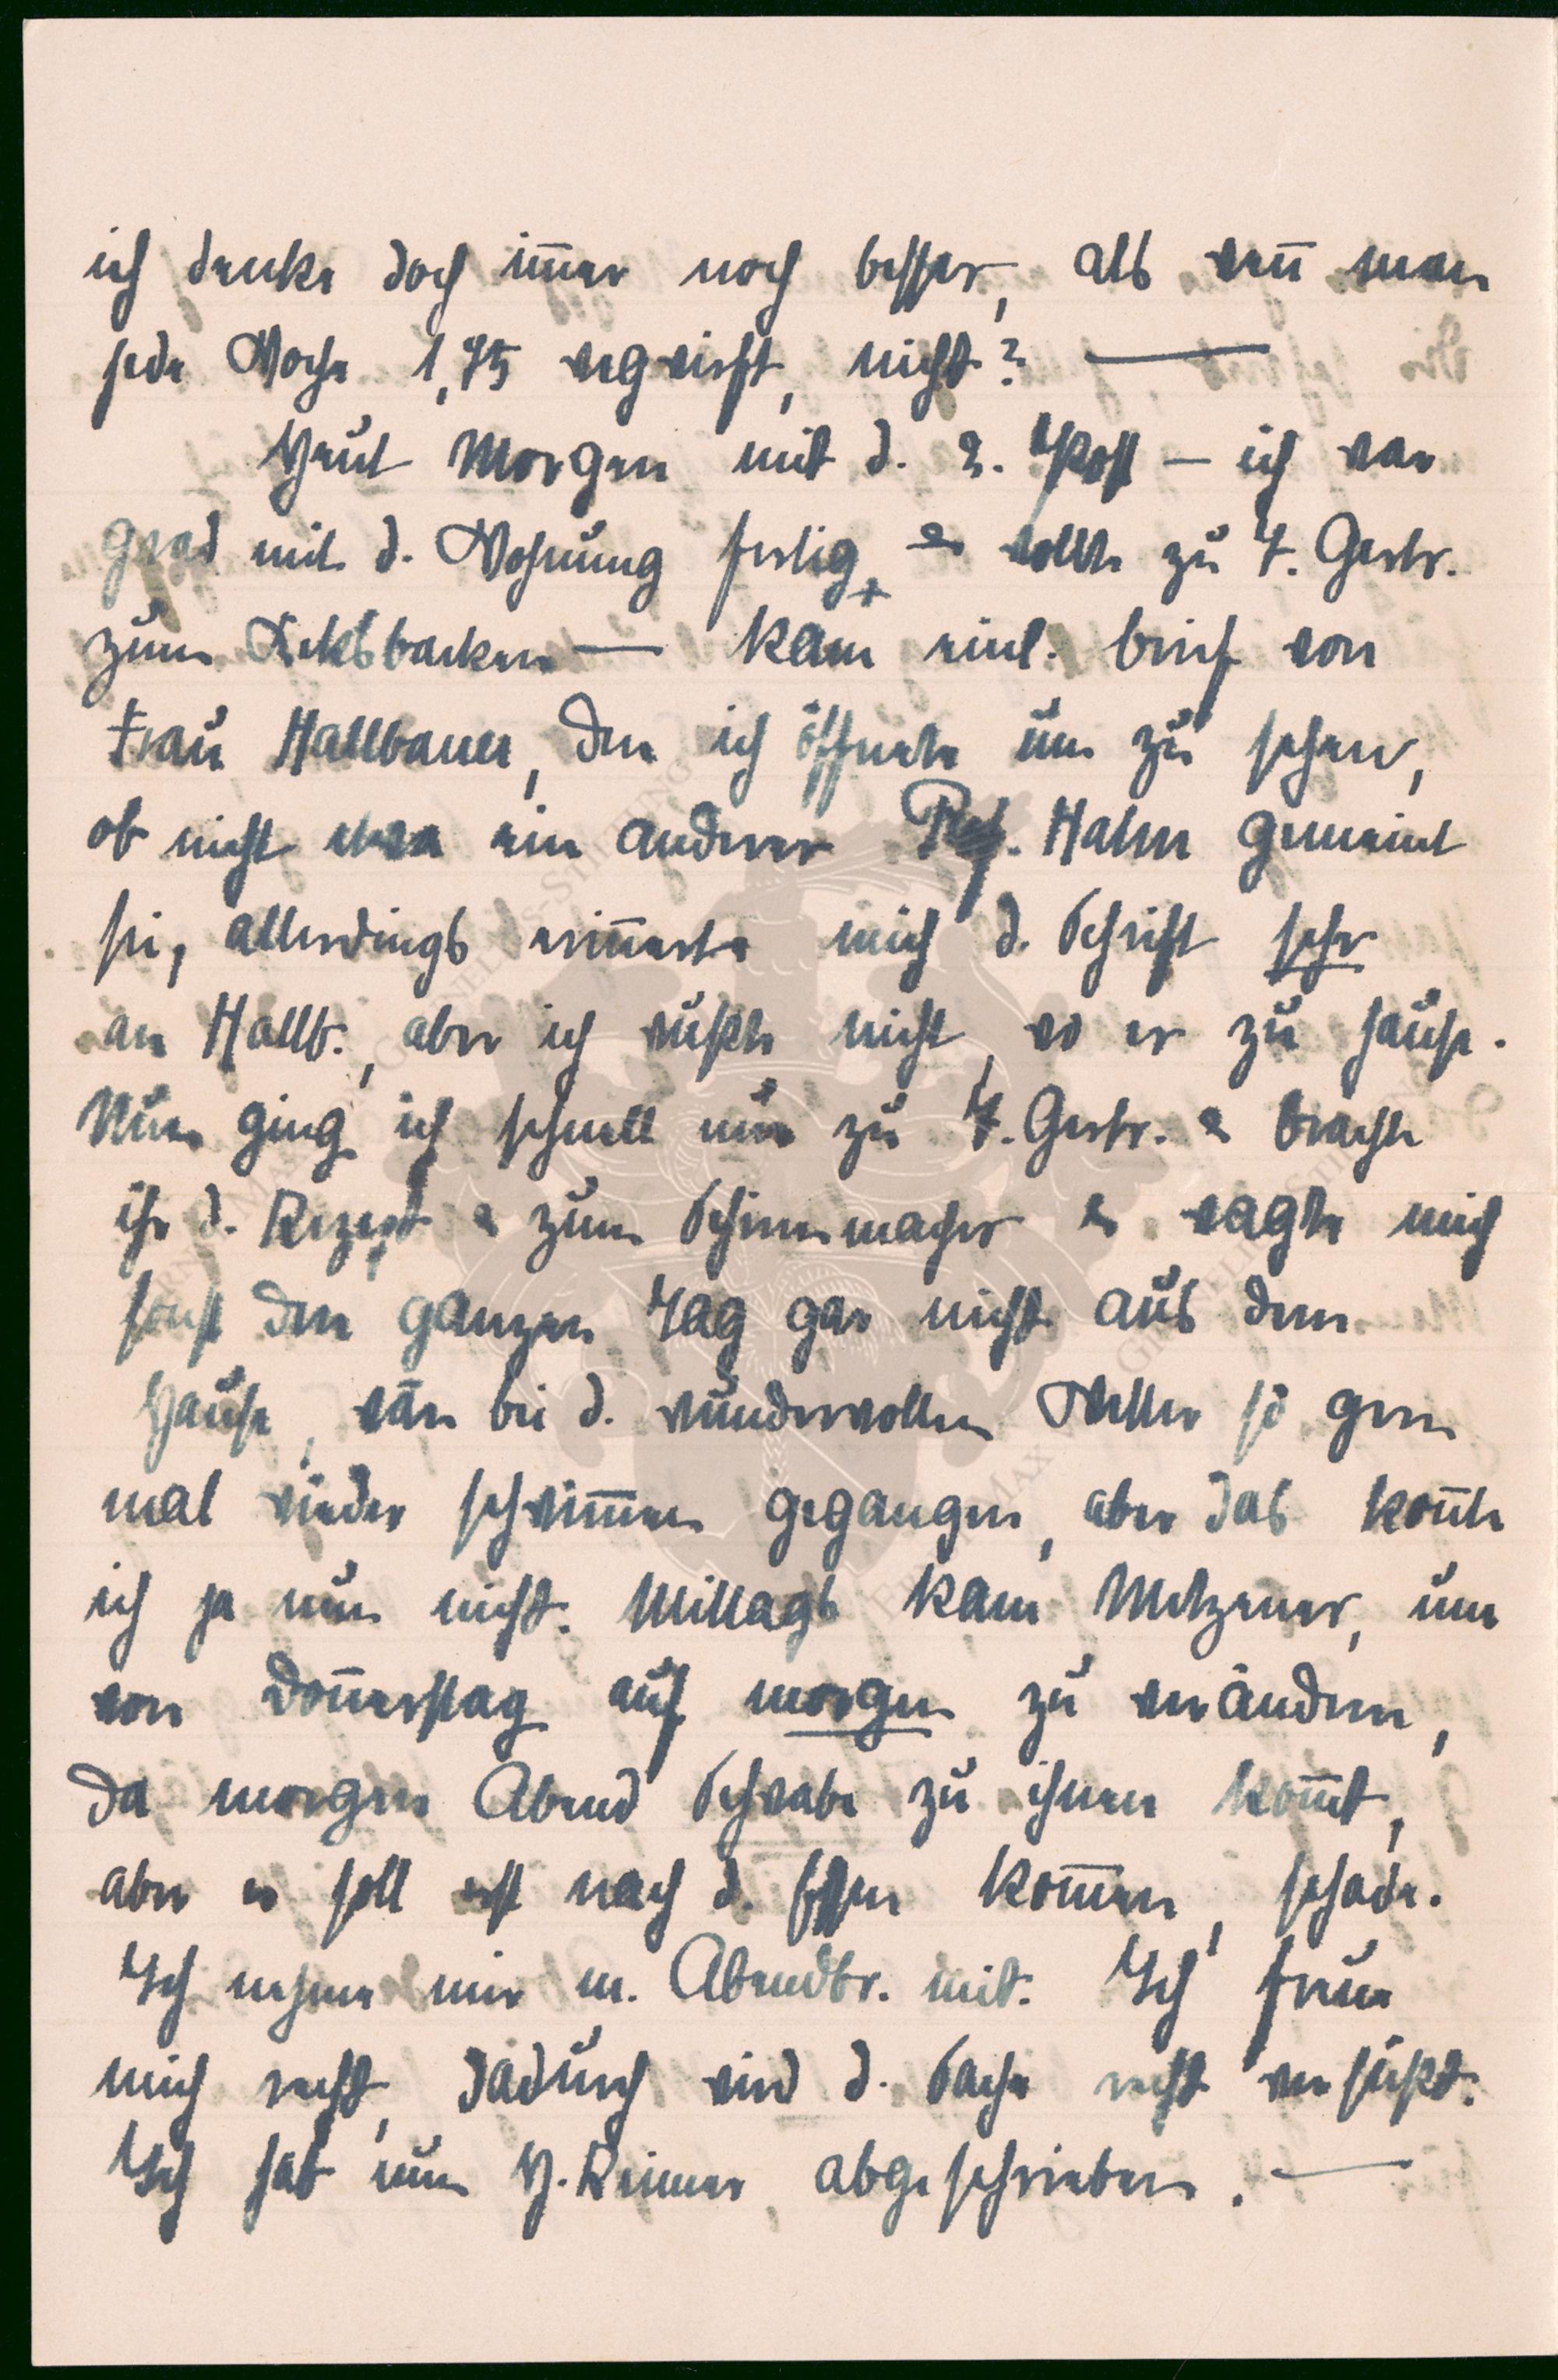 ich denke doch im̅er noch besser, als wen̅ man
jede Woche 1,75 wegwirft, nicht? —
Heut Morgen mit d. 2. Post – ich war
grad mit d. Wohnung fertig & wollte zu T. Gertr.
zum Keksbacken — kam einl. brief von
Frau Hallbauer, den ich öffnete um zu sehen,
ob nicht etwa ein anderer Prof. Hahn gemeint
sei, allerdings erin̅erte mich d. Schrift sehr
an Hallb., aber ich wußte nicht, wo er zu hause.
Nun ging ich schnell nur zu T. Gertr. & brachte
ihr d. Rezept & zum Schirmmacher & wagte mich
sonst den ganzen Tag gar nicht aus dem
Hause, wär bei d. wundervollen Wetter so gern
mal wieder schwim̅en gegangen, aber das kon̅te
ich ja nun nicht. Mittags kam Metzener, um
von Don̅erstag auf morgen zu verändern,
da morgen Abend Schwabe zu ihnen kom̅t,
aber er soll erst nach d. Essen kom̅en, schade.
Ich nehme mir m. Abendbr. mit. Ich freue
mich recht, dadurch wird d. Sache recht versüßt.
Ich hab nun H. Reimer abgeschrieben. —